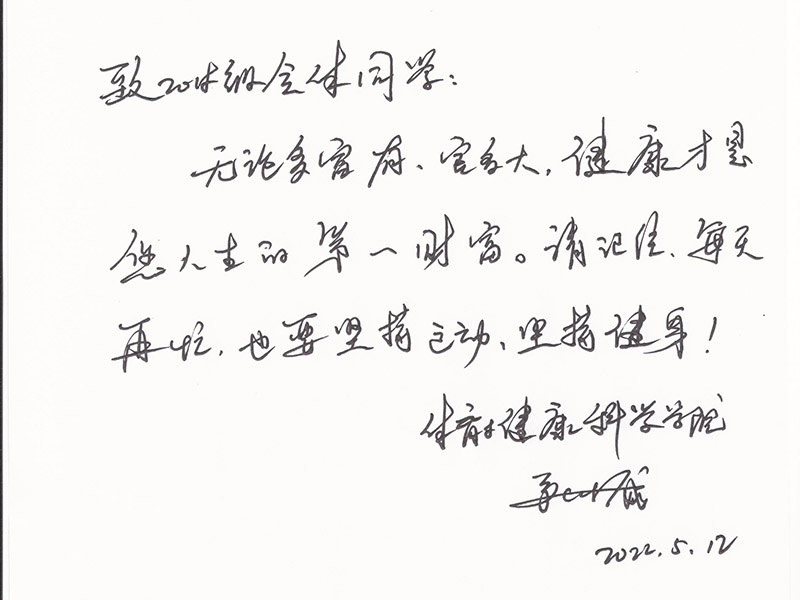 致2018级全体同学：
无论多富有、官多大，健康才是
您人生的第一财富。请记住、每天
再忙，也要坚持运动、坚持健身！
体育与健康科学学院
2022.5.12